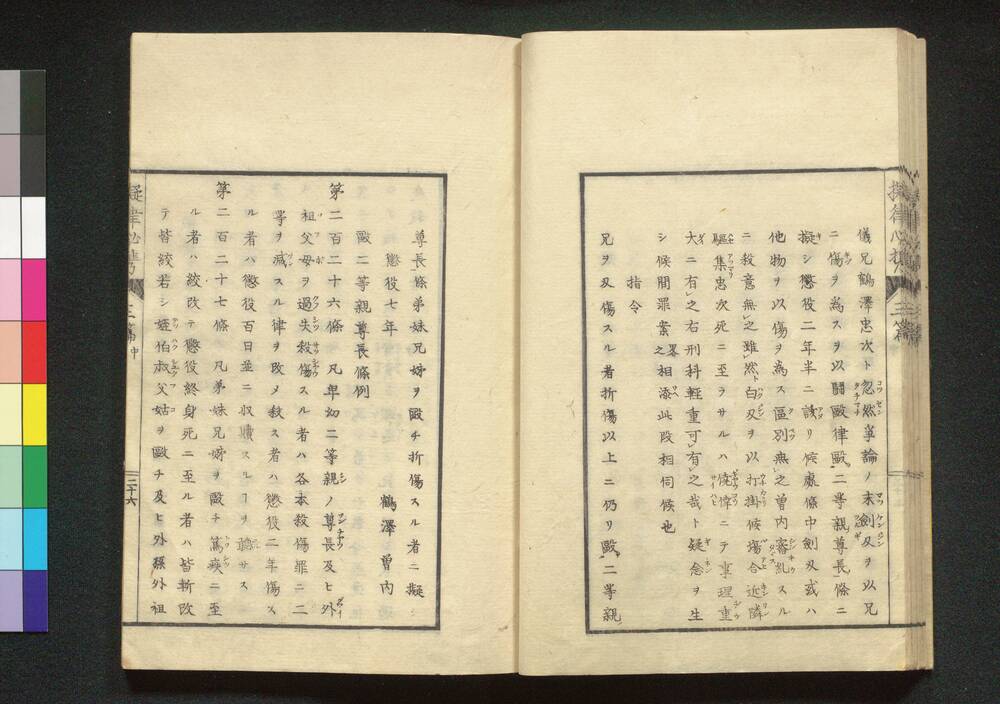 儀兄鶴澤忠次ト忽然爭論ノ末劍刄ヲ以兄
ニ傷ヲ為スヲ以鬪毆律毆二等親尊長條ニ
擬シ懲役二年半ニ該リ候處條中劍刄或ハ
他物ヲ以傷ヲ為ス區別無之曽内審乱スル
ニ殺意無之雖然白刄ヲ以打掛候塲合近隣
驅集忠次死ニ至ラサルハ僥倖ニテ事理重
大ニ有之右刑科軽重可有之哉ト疑念ヲ生
シ候間罪案畧之相添此段相伺候也
指令
兄ヲ刄傷スル者折傷以上ニ仍リ毆二等親
尊長條弟妹兄姉ヲ毆チ折傷スル者ニ擬シ
懲役七年　鶴澤曽内
毆二等親尊長條例
第二百二十六條　凡卑幼二等親ノ尊長及ヒ外
祖父母ヲ過失殺傷スル者ハ各本殺傷罪ニ二
等ヲ減スル律ヲ改メ殺ス者ハ懲役二年傷ス
ル者ハ懲役百日並ニ収贖スルヿヲ聽サス
第二百二十七條　凡弟妹兄姉ヲ毆チ篤疾ニ至
ル者ハ絞改テ懲役終身死ニ至ル者ハ皆斬改
テ皆絞若シ姪伯叔父姑ヲ毆チ及ヒ外孫外祖
三篇 中
二十六